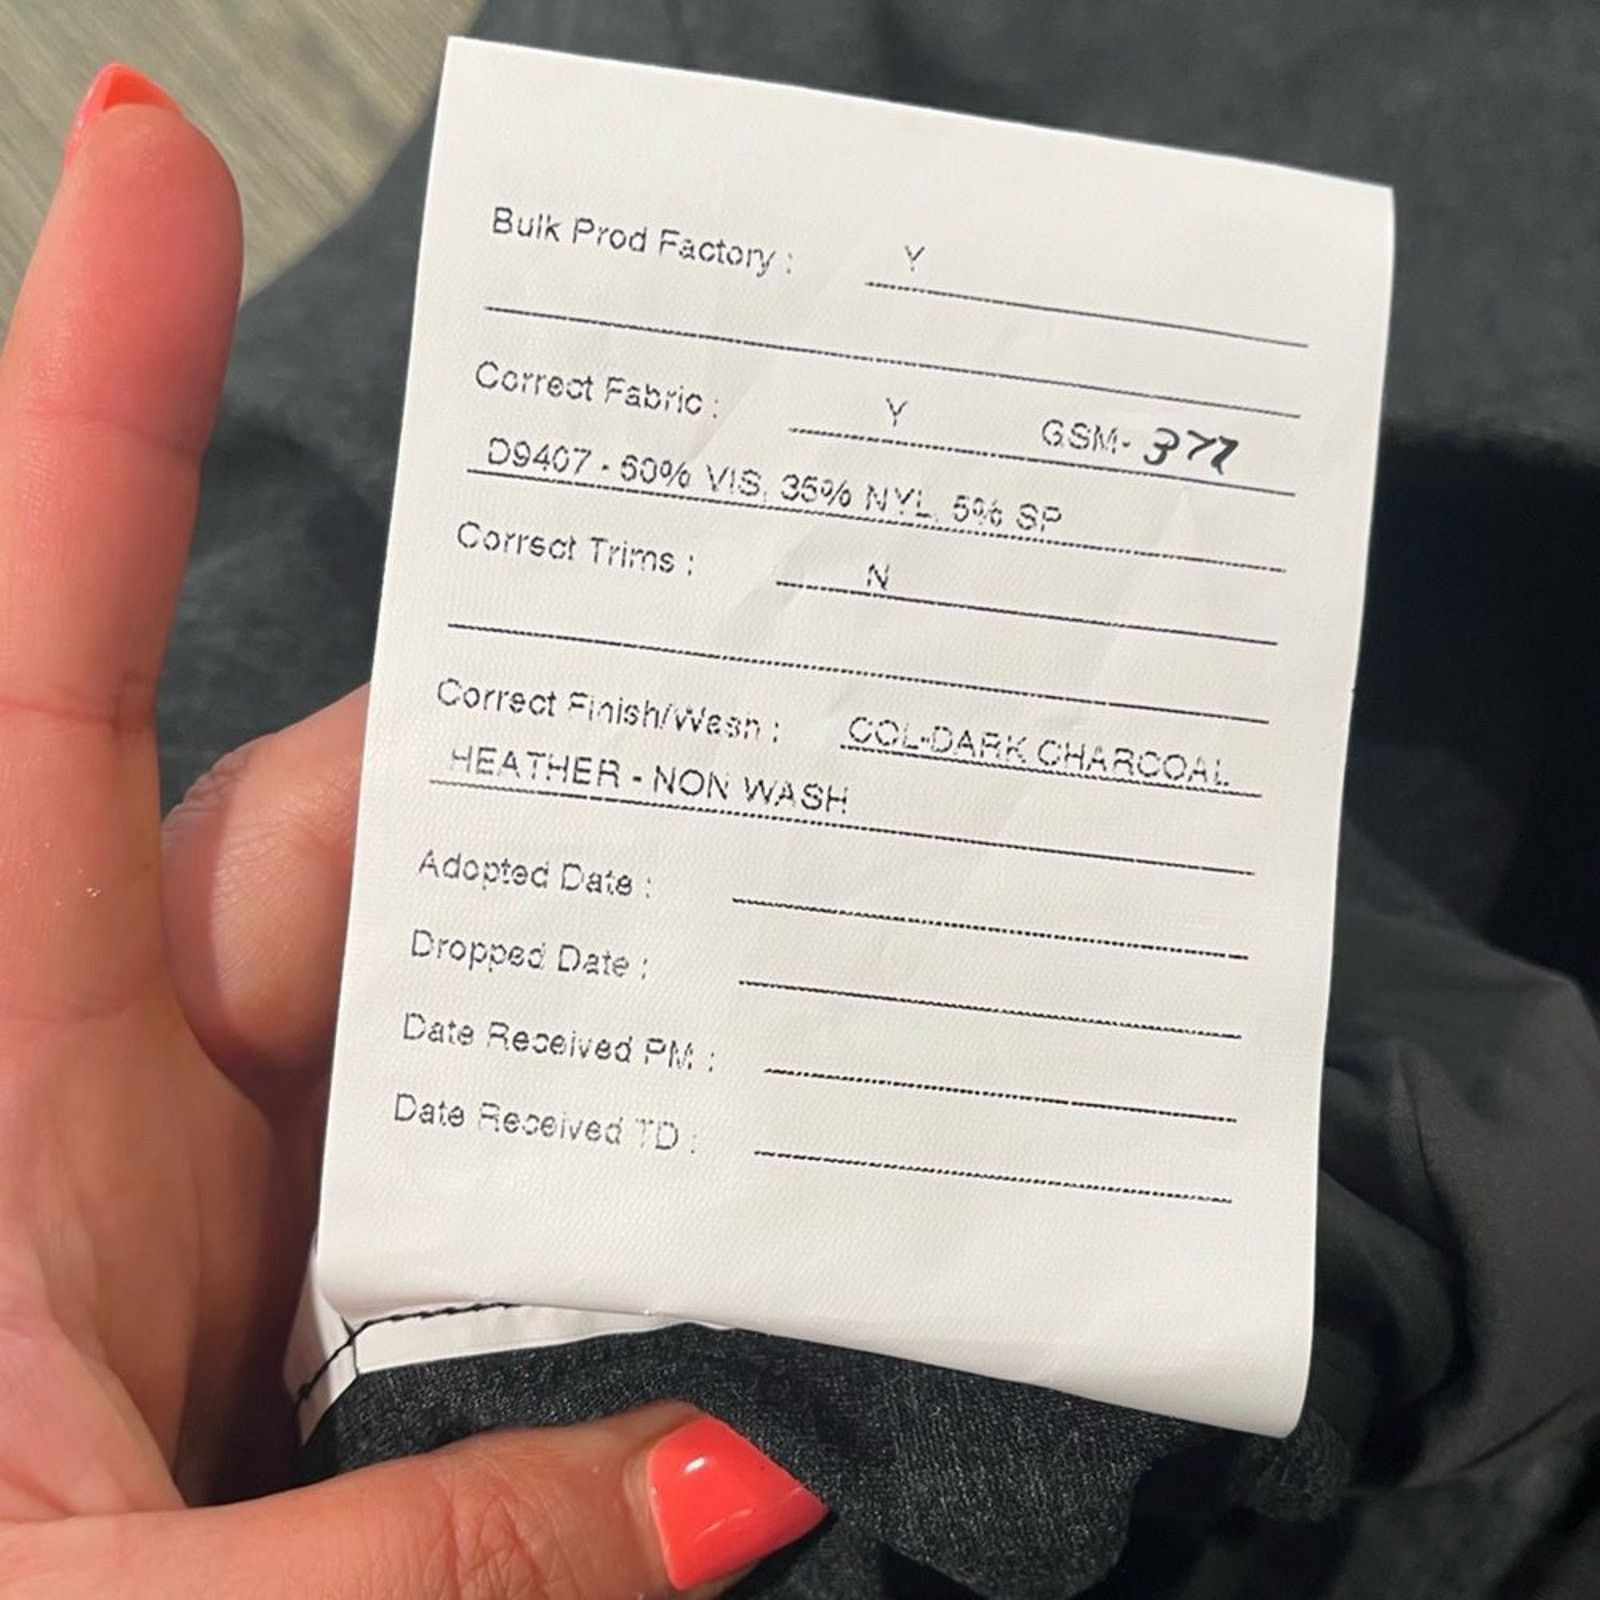 Bulk Prod Factory : Y
Correct Fabric : Y GSM- 377
D9407 - 60% VIS, 35% NYL, 5% SP
Correct Trims : N
Correct Finish/Wash : COL-DARK CHARCOAL
HEATHER - NON WASH
Adopted Date :
Dropped Date :
Date Received PM :
Date Received TD :